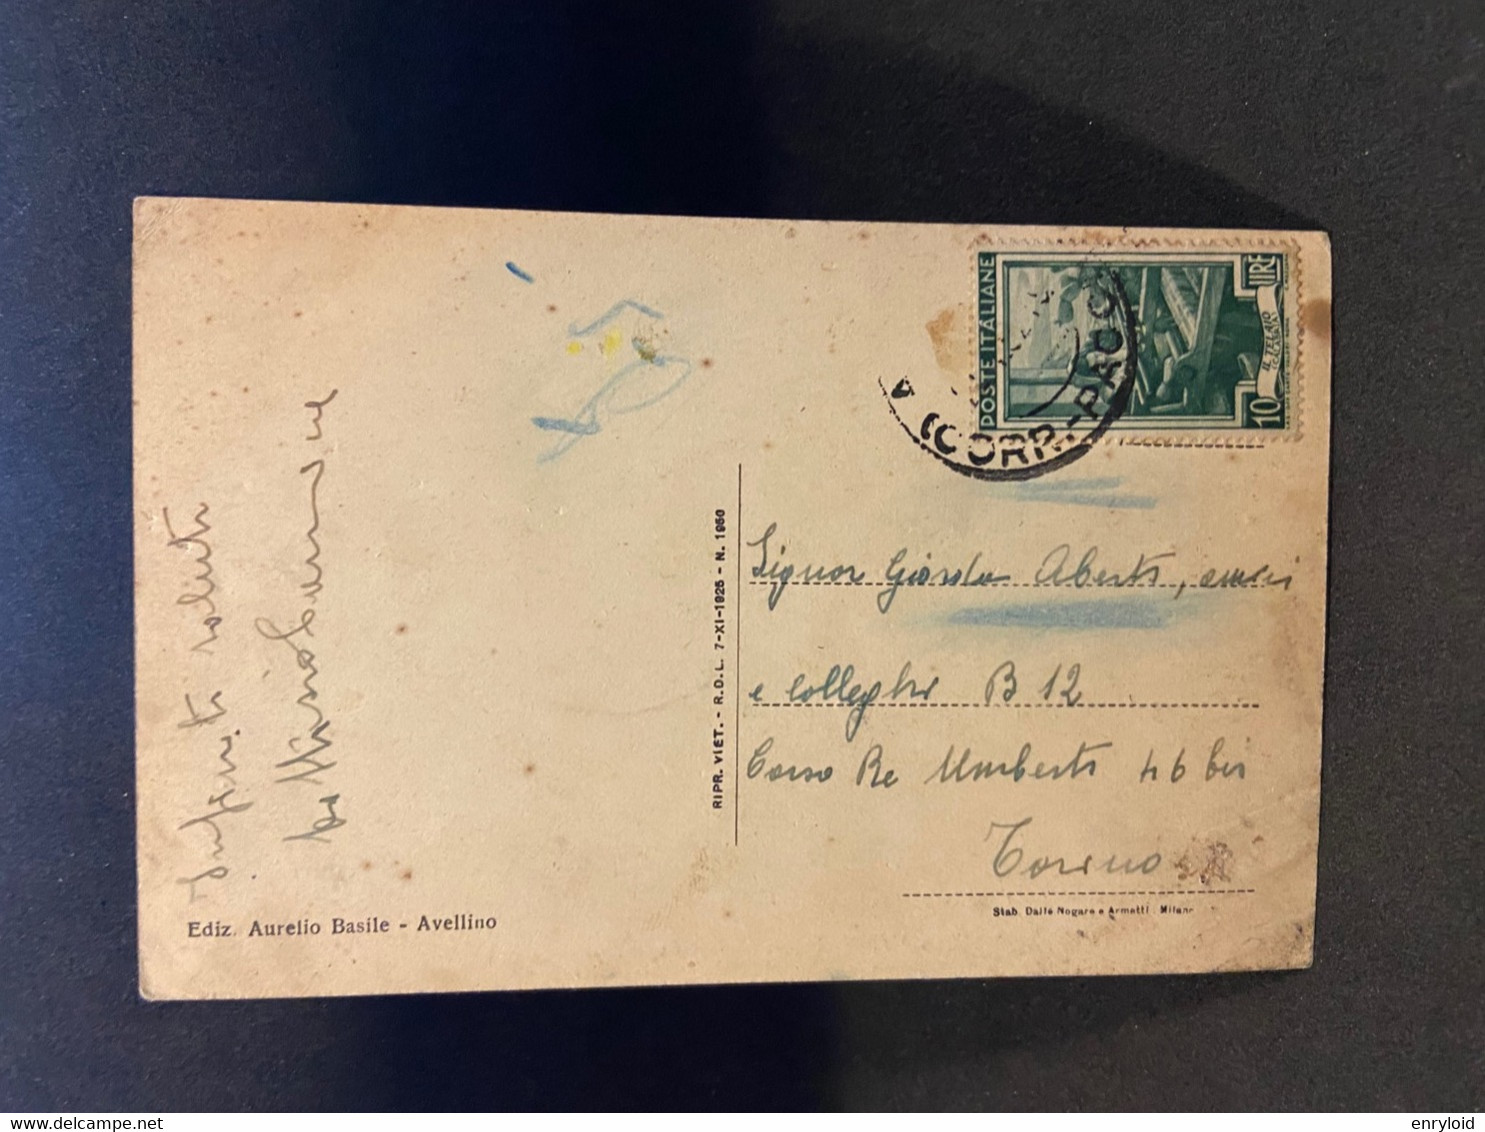 POSTE ITALIANE
10 LIRE
IL TELAIO
(CORR.-PACC
Signor Giordo Aberto, amici
e colleghi B 12
Corso Re Umberto 46 bis
Torino
saluti
RIPR. VIET. - R.D.L. 7-XI-1925 - N. 1950
Ediz. Aurelio Basile - Avellino
Stab. Dalle Nogare e Armetti Milano
delcampe.net
enryloid